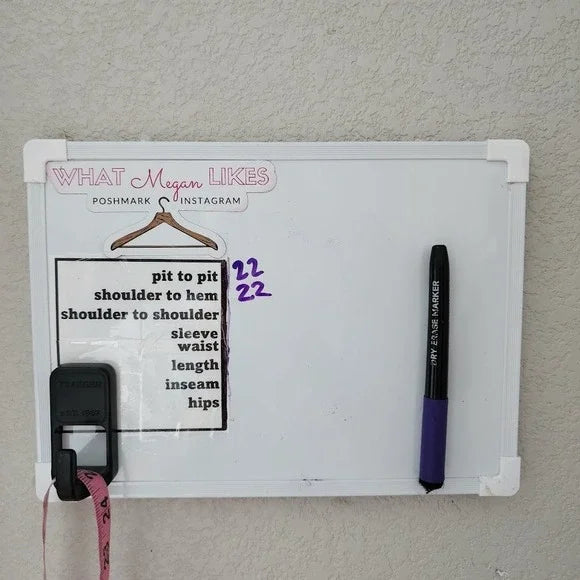 WHAT Megan LIKES
POSHMARK INSTAGRAM
pit to pit 22
shoulder to hem 22
shoulder to shoulder
sleeve
waist
length
inseam
hips
TRAEGER
EST. 1987
DRY ERASE MARKER